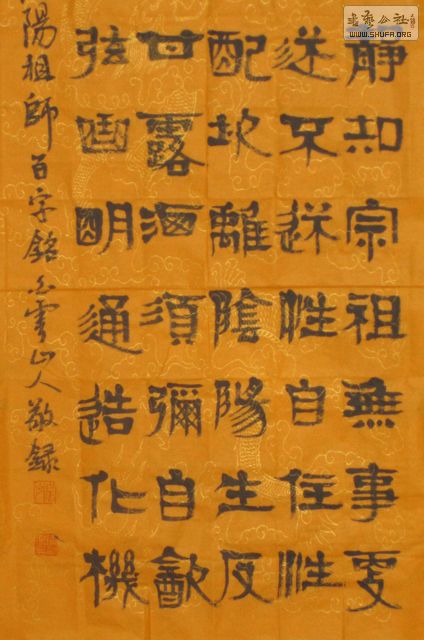 書藝公社
WWW.SHUFA.ORG
靜知宗祖無事更
迷不迷性自住性
配坎離陰陽生反
甘露洒須彌自飲
弦曲明通造化機
陽祖師百字銘雲山人敬録